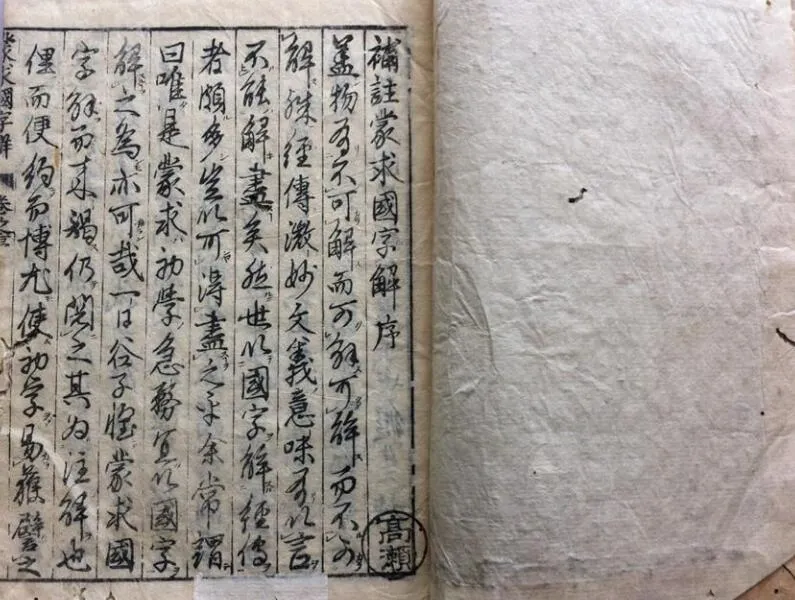 補註蒙求國字解序
髙瀬
蓋物有不可解而可解可解而不可
解殊經傳微妙文義意味有以言
不能解盡矣然世以國字解經傳
者頗多豈以可得盡之乎余常謂
曰唯是蒙求初學急務宜以國字
解之為亦可哉一日谷子蒙求國
字解而来謁仍閲之其為注解也
俚而便約而博尤使初学易獲譬之
蒙求國字解 卷之